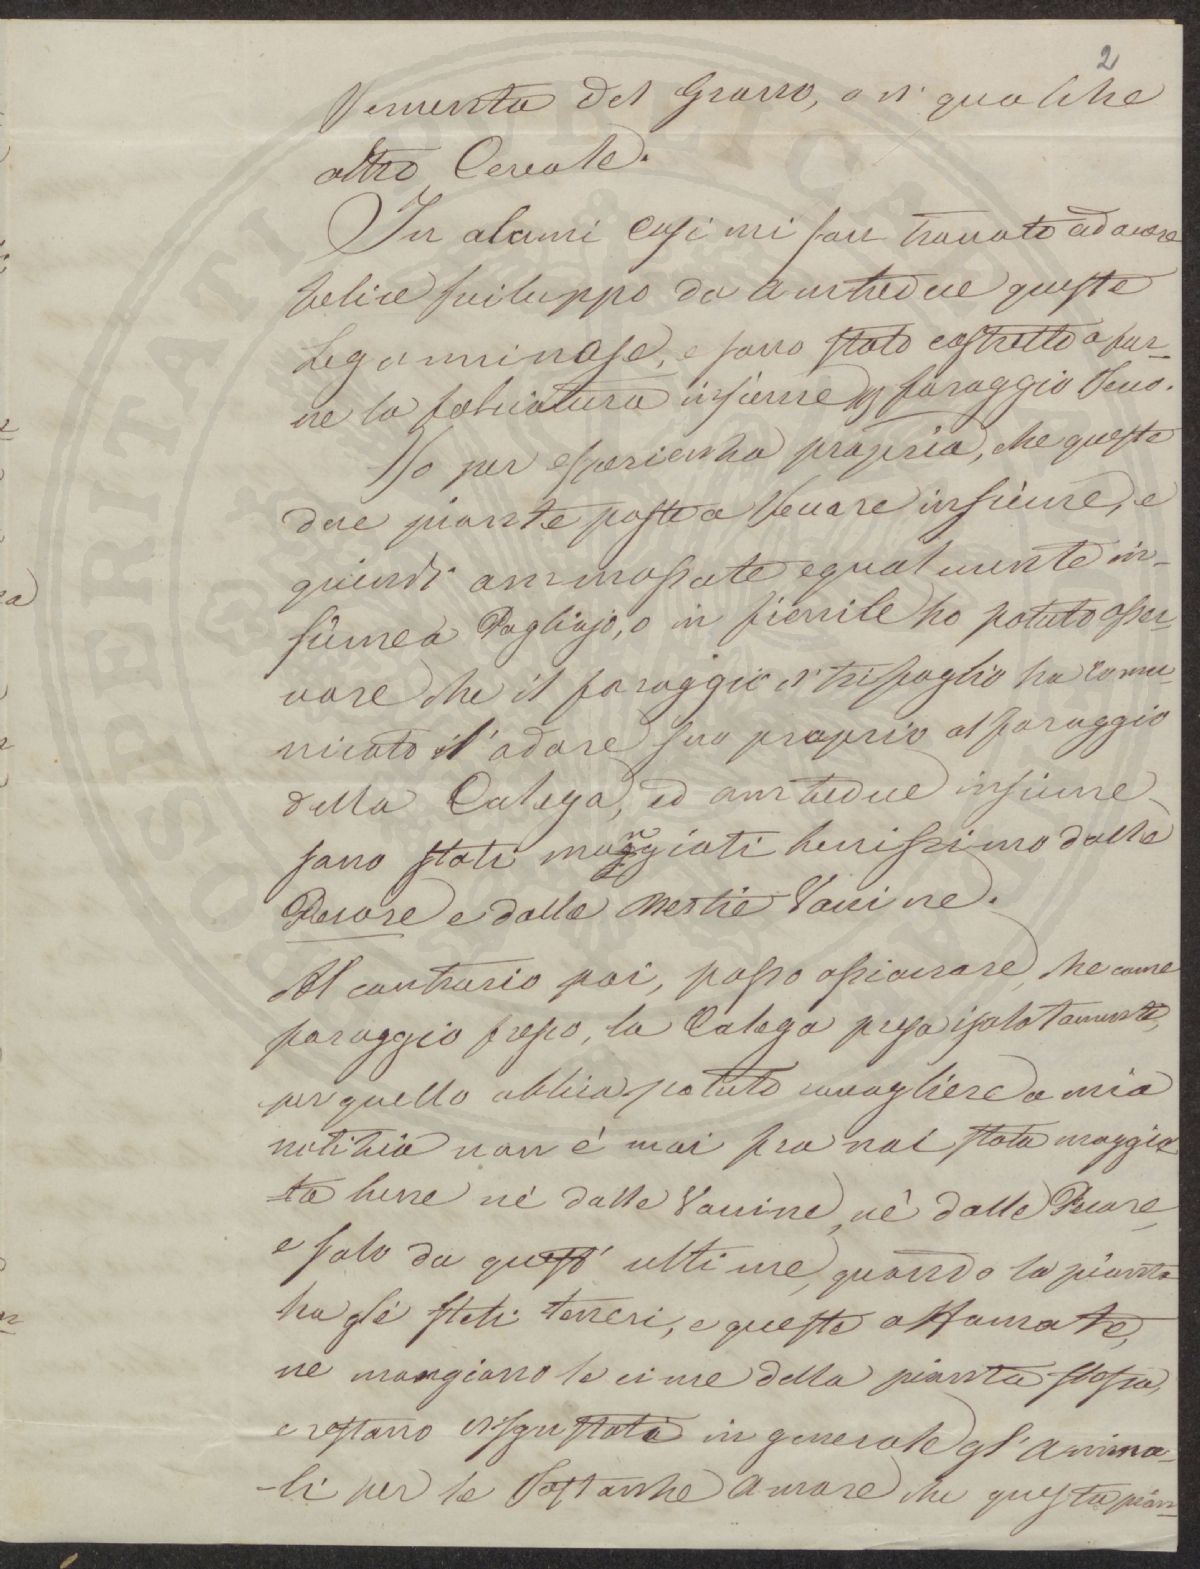 2
Sementa del Grano, o di qualche
altro Cereale.
In alcuni casi mi son trovato ad avere
felice sviluppo da amendue queste
Leguminose, e sono stato costretto a far-
ne la falciatura insieme foraggio secco.
Ho per esperienza propria, che queste
due piante poste a seccare insieme, e
quindi ammassate egualmente in-
sieme a Pagliajo, o in fienile ho potuto osser-
vare che il foraggio di trifoglio ha comu-
nicato l'odore suo proprio al foraggio
della Galega, ed amendue insieme
sono stati mangiati benissimo dalle
Pecore e dalle Bestie Vaccine.
Al contrario poi, posso assicurare, che come
foraggio fresco, la Galega presa isolatamente,
per quello abbia potuto raccogliere a mia
notizia non è mai fra noi stata mangia
ta bene nè dalle Vaccine, nè dalle Pecore,
e solo da quest' ultime, quando la pianta
ha gli steli teneri, e queste affamate,
ne mangiano le cime della pianta stessa,
e restano disgustati in generale gl' anima-
li per le sostanze amare che questa pian-
PROSPERITATI PUBLICAE AUGENDAE